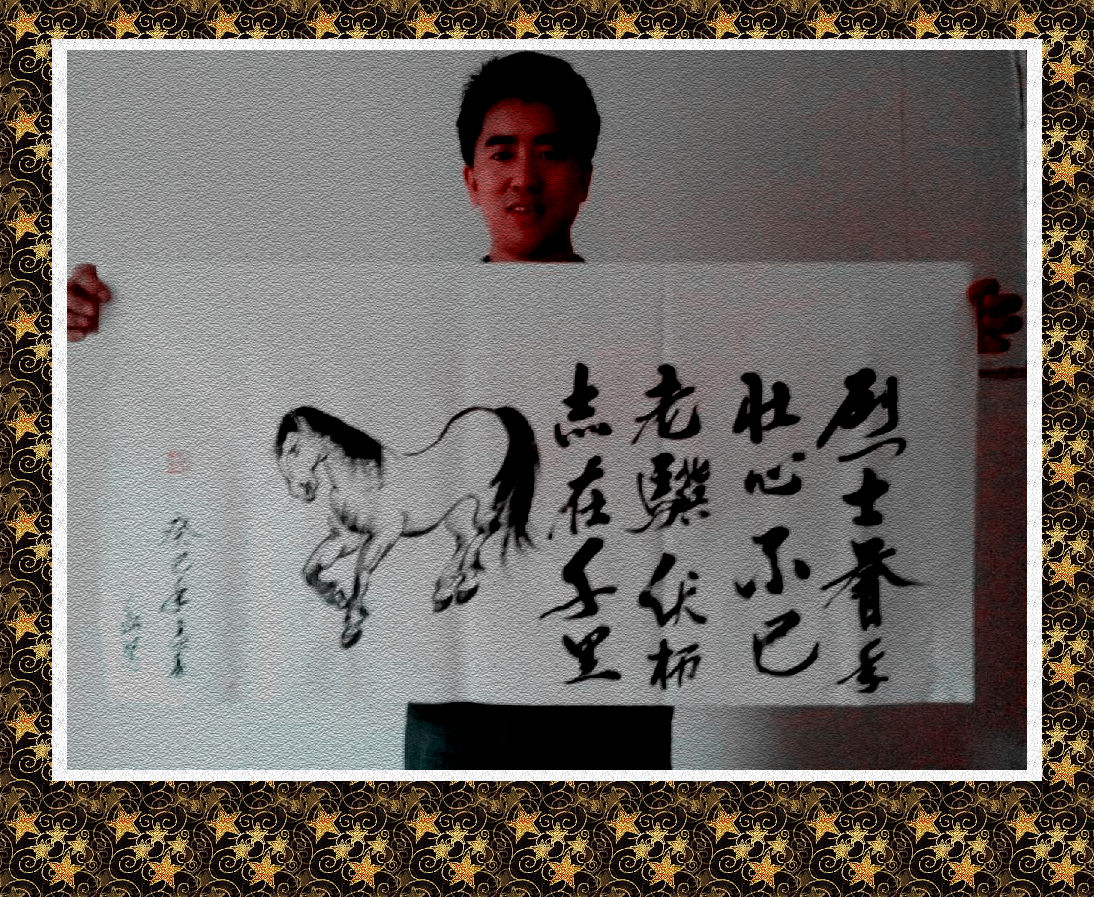 烈士暮年
壮心不已
老驥伏枥
志在千里
癸巳